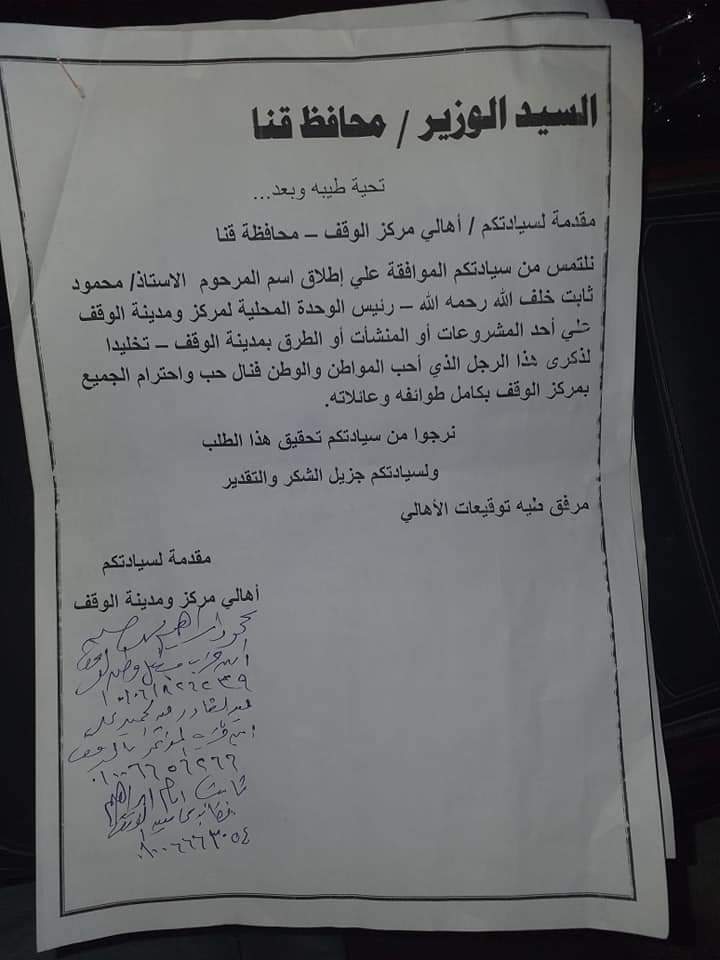 السيد الوزير / محافظ قنا
تحية طيبه وبعد...
مقدمة لسيادتكم / أهالي مركز الوقف – محافظة قنا
نلتمس من سيادتكم الموافقة علي إطلاق اسم المرحوم الاستاذ/ محمود
ثابت خلف الله رحمه الله – رئيس الوحدة المحلية لمركز ومدينة الوقف
علي أحد المشروعات أو المنشأت أو الطرق بمدينة الوقف – تخليدا
لذكرى هذا الرجل الذي أحب المواطن والوطن فنال حب واحترام الجميع
بمركز الوقف بكامل طوائفه وعائلاته.
نرجوا من سيادتكم تحقيق هذا الطلب
ولسيادتكم جزيل الشكر والتقدير
مرفق طيه توقيعات الأهالي
مقدمة لسيادتكم
أهالي مركز ومدينة الوقف
أمين حزب مستقبل وطن
عبد القادر عبد الحميد
أمين حزب المؤتمر بالوقف
ثابت امام ابراهيم